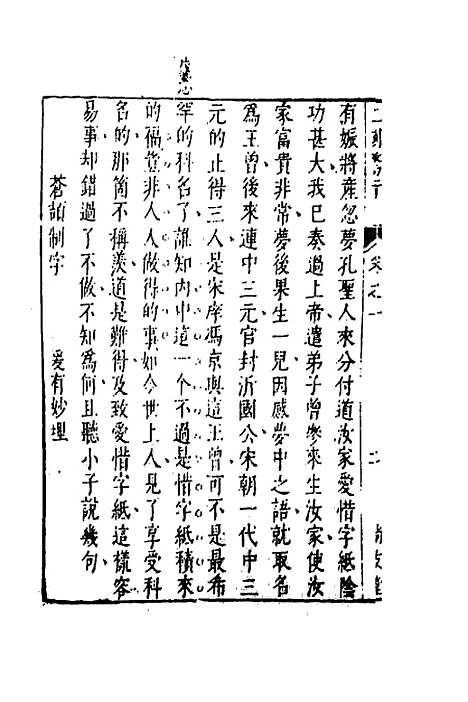 二刻驚奇 卷之一 二 尚友堂
有娠將產忽夢孔聖人來分付道汝家愛惜字紙陰
功甚大我已奏過上帝遣弟子曾參來生汝家使汝
家富貴非常夢後果生一兒因感夢中之語就取名
為王曾後來連中三元官封沂國公宋朝一代中三
元的止得三人是宋庠馮京與這王曾可不是最希
罕的科名了誰知內中這一个不過是惜字紙積來
的福豈非人人做得的事如今世上人見了享受科
名的那箇不稱羨道是難得及致愛惜字紙這樣容
易事却錯過了不做不知為何且聽小子說幾句
蒼頡制字 爰有妙理